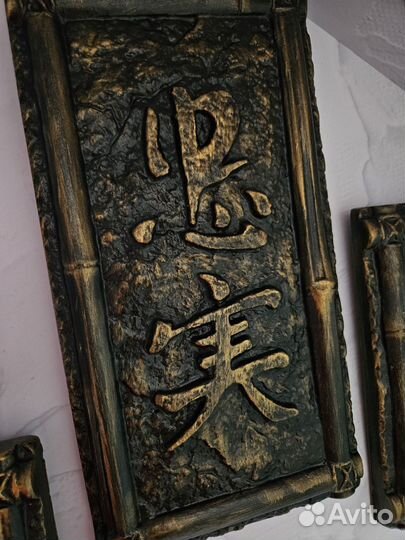 忠
実
Avito